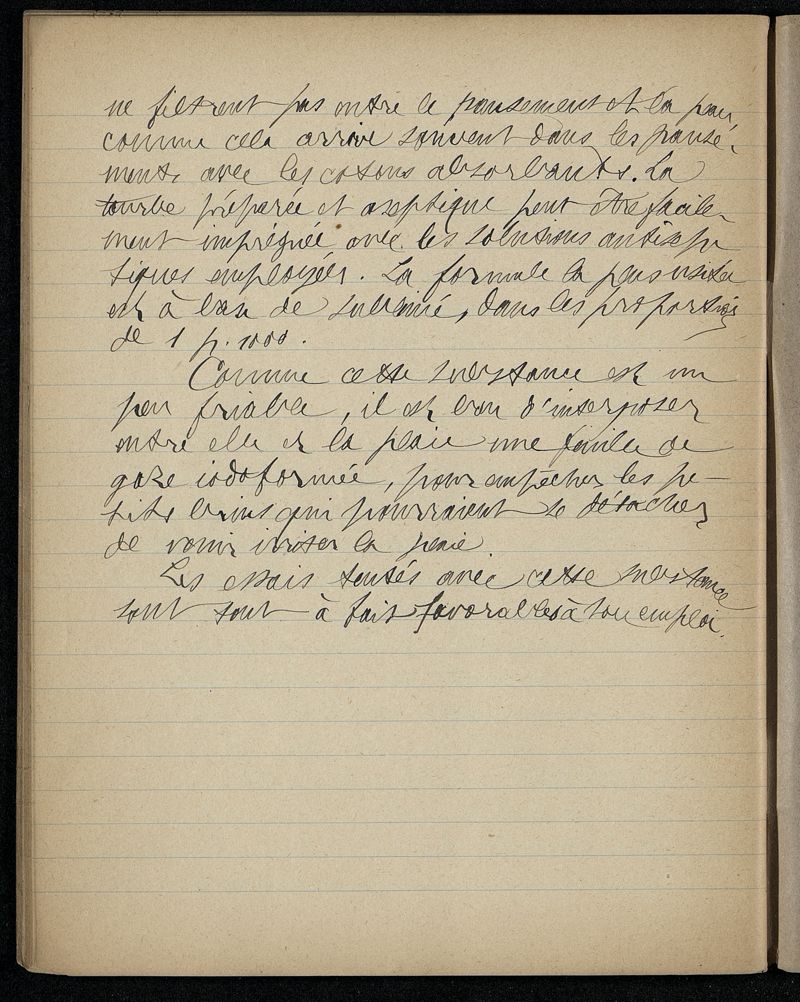 ne filtrent pas entre le pansement et la peau,
comme cela arrive souvent dans les panse-
ments avec les cotons absorbants. La
tourbe préparée et aseptique peut être facile-
ment imprégnée avec les solutions antisep-
tiques employées. La formule la plus usitée
est à base de sublimé, dans les proportions
de 1 p. 1000.
Comme cette substance est un
peu friable, il est bon d'interposer
entre elle et la plaie une feuille de
gaze iodoformée, pour empêcher les pe-
tits brins qui pourraient se détacher
de venir irriter la plaie.
Les essais tentés avec cette substance
sont tout à fait favorables à son emploi.